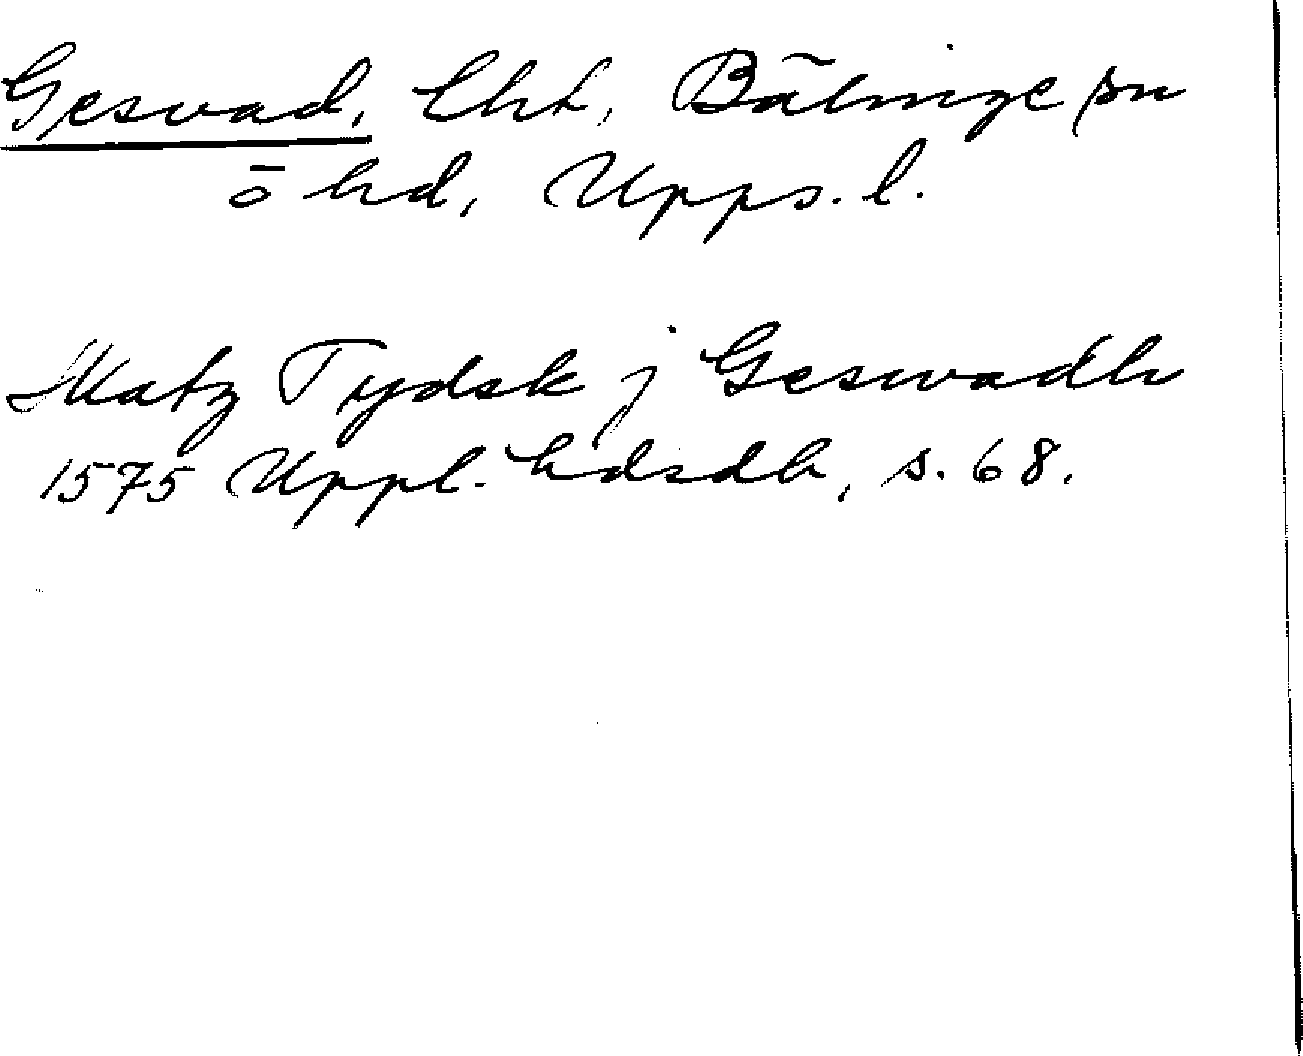 Gesvad, Ekt, Bälinge sn
ö hd, Upps. l.
Matz Tydsk j Geswadh
1575 Uppl. hdsdb, s. 68.